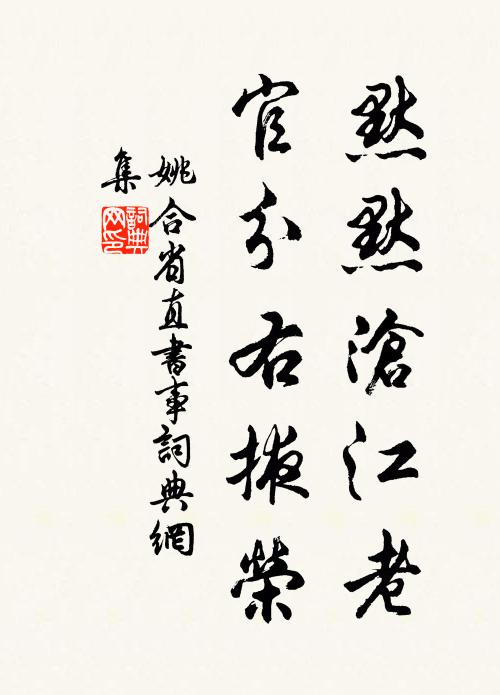 默默滄江老
官分右掖榮
姚合省直書事詞典網
集
詞典網印